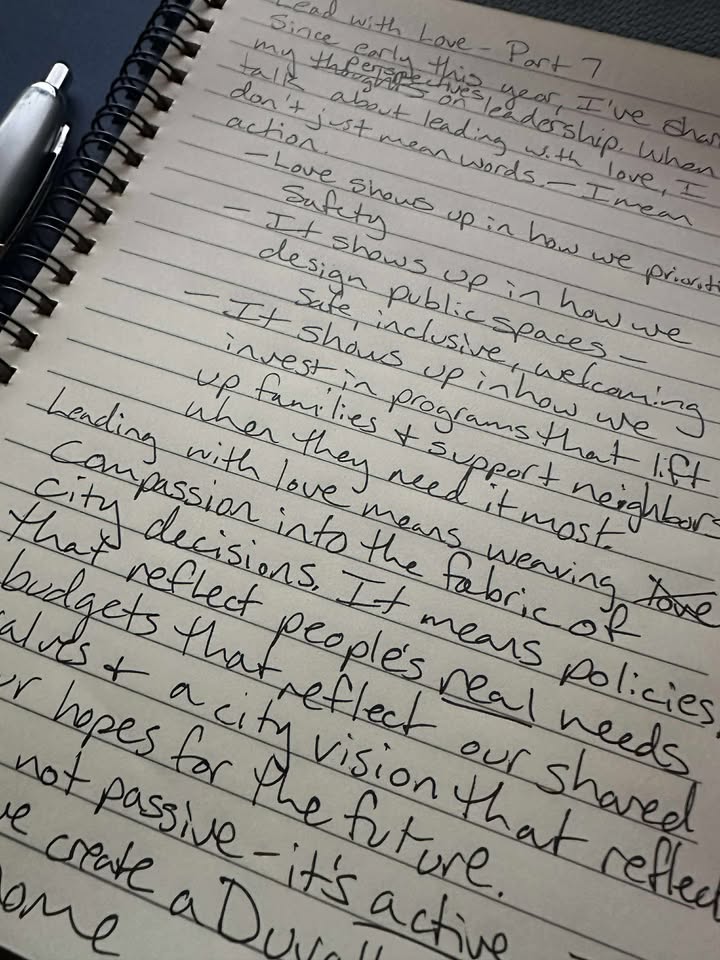 Lead with Love - Part 7
Since early this year, I've
my thoughts perspectives on leadership. When
talk about leading with love, I
don't just mean words. - I mean
action.
- Love shows up in how we
Safety
- It shows up in how we
design public spaces -
safe, inclusive, welcoming
- It shows up in how we
invest in programs that lift
up families & support neighbors
when they need it most.
Leading with love means weaving love
compassion into the fabric of
city decisions. It means policies
that reflect people's real needs
budgets that reflect our shared
& a city vision that reflect
hopes for the future.
not passive - it's active
create a